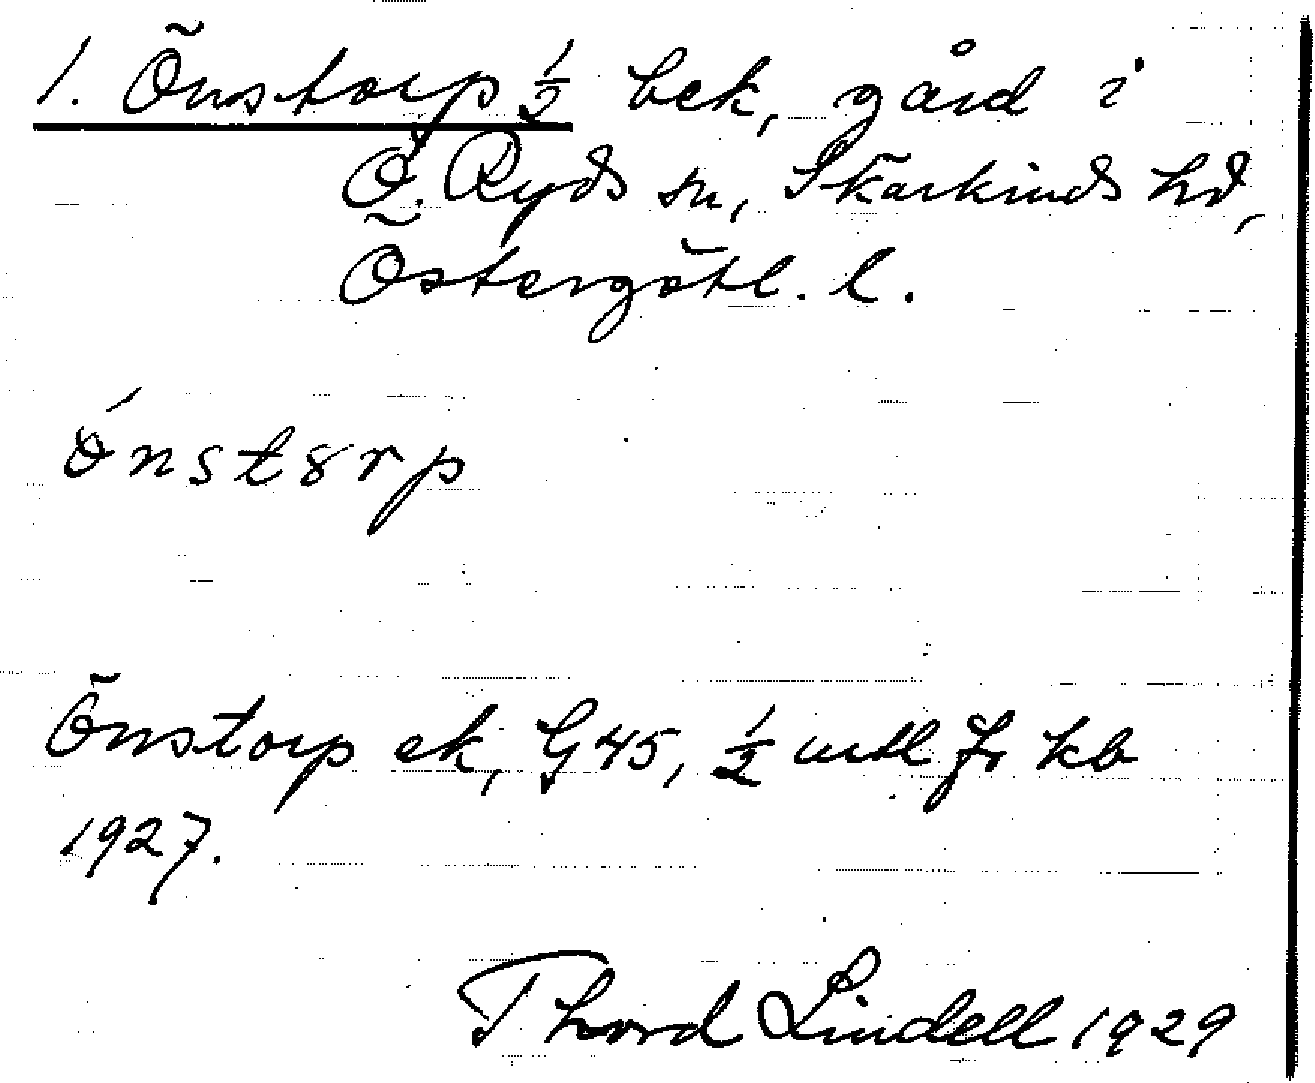 1. Önstorp ½ bek, gård i
Ö. Ryds sn, Skärkinds hd,
Östergötl. l.
ö́nstorp
Önstorp ek, G45, ½ mtl jr kb
1927.
Thord Lindell 1929